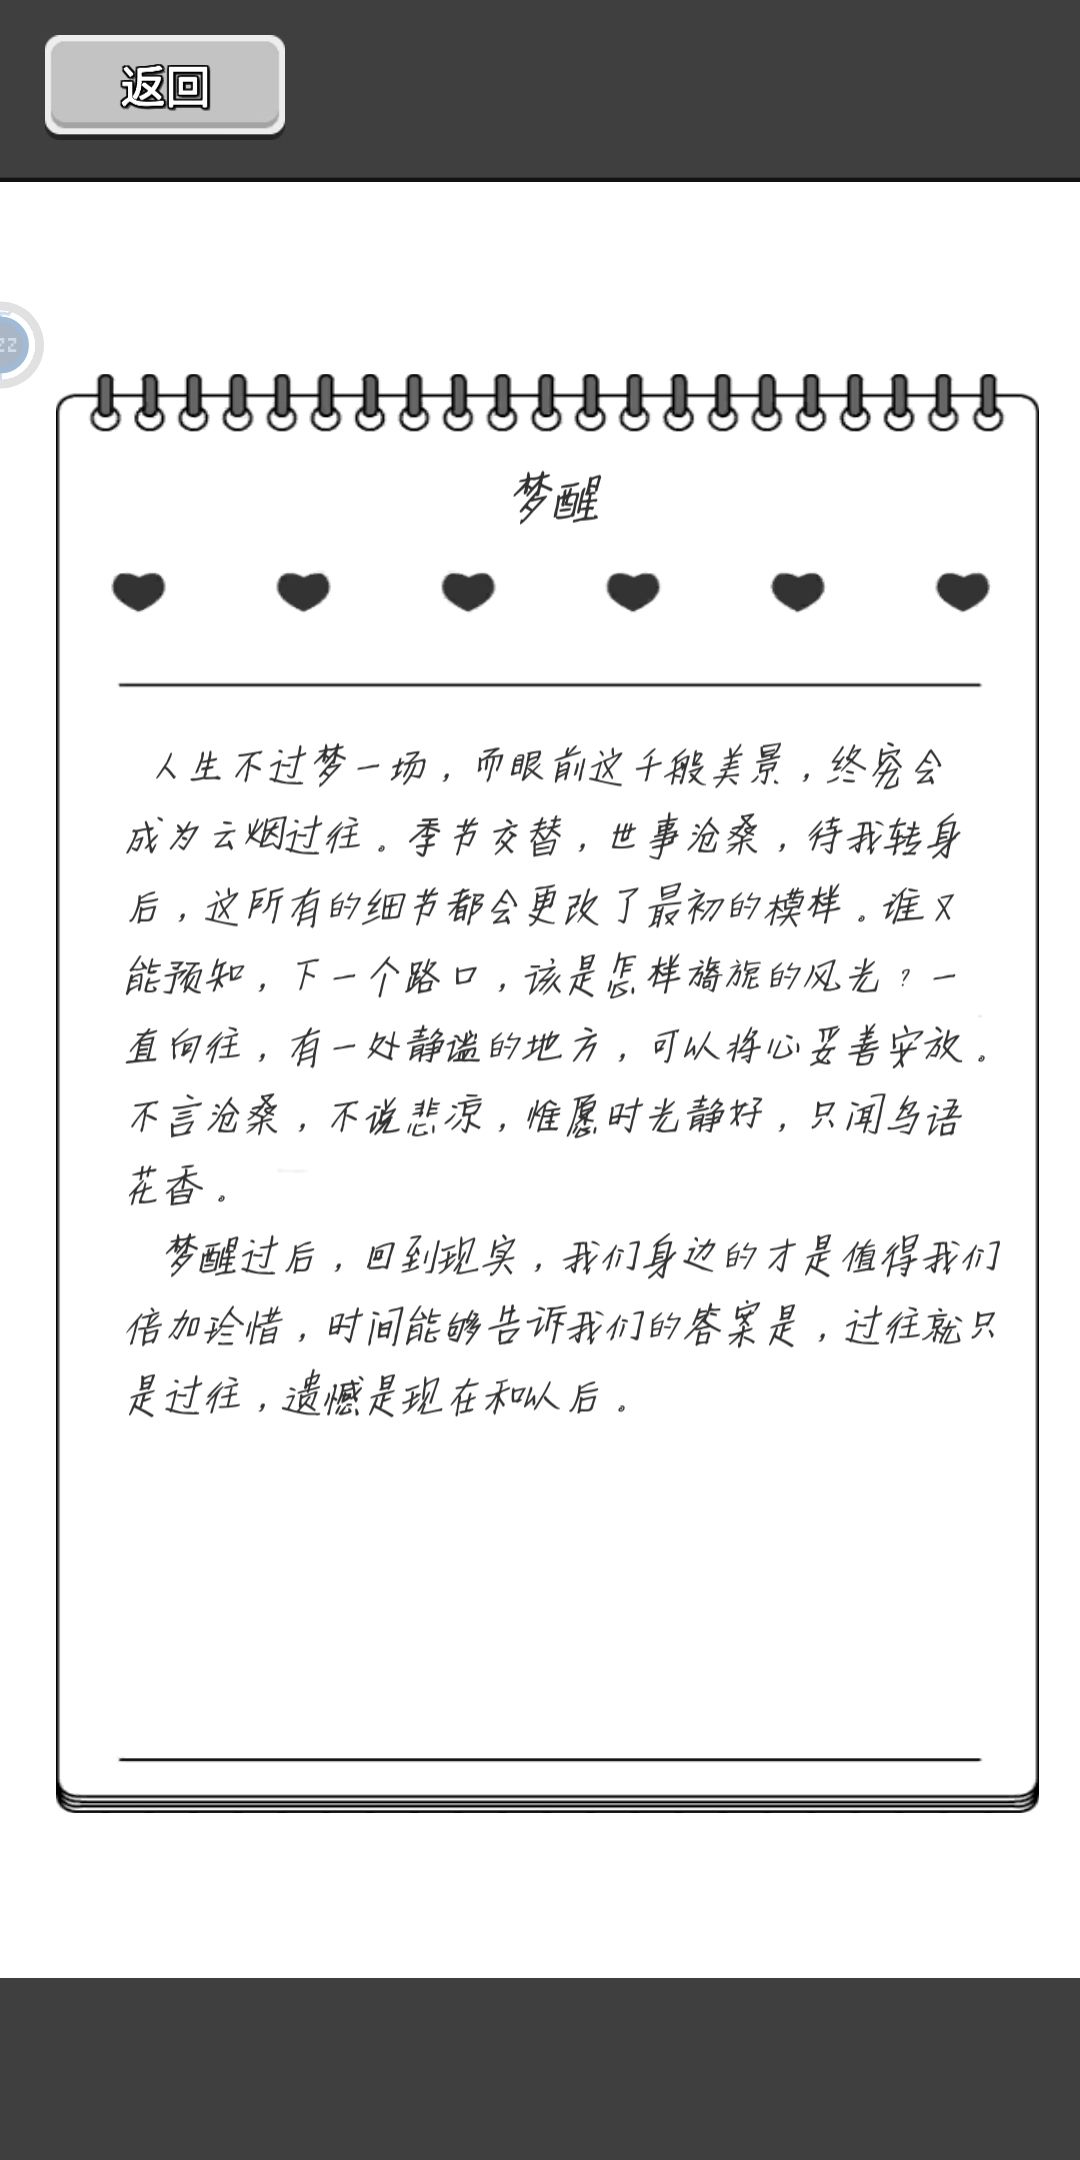 返回
zz
梦醒
人生不过梦一场，而眼前这千般美景，终究会
成为云烟过往。季节交替，世事沧桑，待我转身
后，这所有的细节都会更改了最初的模样。谁又
能预知，下一个路口，该是怎样旖旎的风光？一
直向往，有一处静谧的地方，可以将心妥善安放。
不言沧桑，不说悲凉，惟愿时光静好，只闻鸟语
花香。
梦醒过后，回到现实，我们身边的才是值得我们
倍加珍惜，时间能够告诉我们的答案是，过往就只
是过往，遗憾是现在和以后。